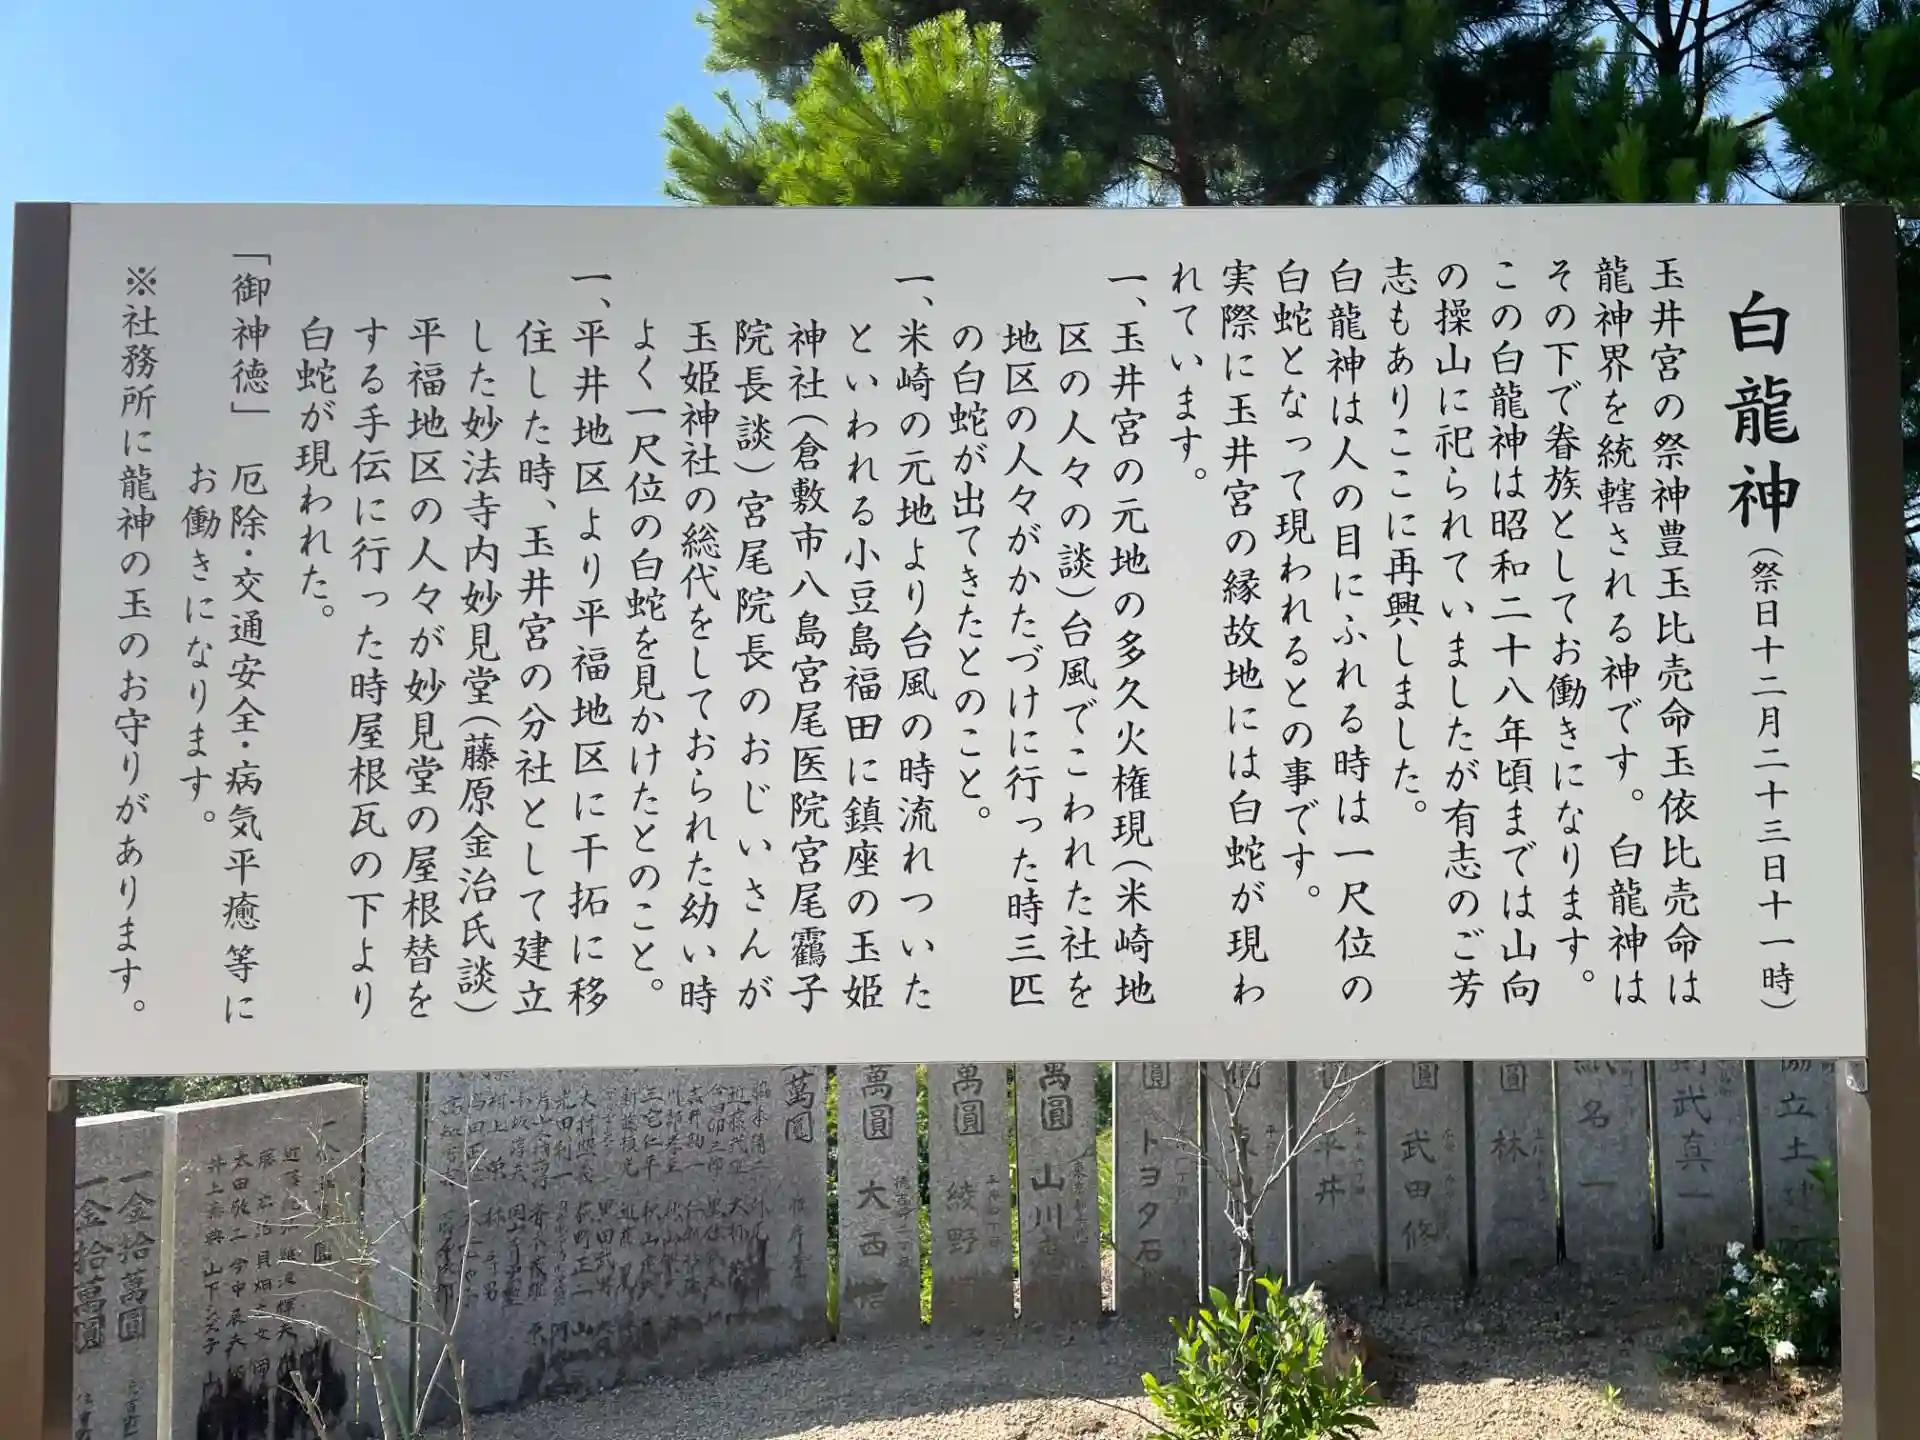 白龍神(祭日十二月二十三日十一時)
玉井宮の祭神豊玉比売命玉依比売命は
龍神界を統轄される神です。白龍神は
その下で眷族としてお働きになります。
この白龍神は昭和二十八年頃までは山向
の操山に祀られていましたが有志のご芳
志もありここに再興しました。
白龍神は人の目にふれる時は一尺位の
白蛇となって現われるとの事です。
実際に玉井宮の縁故地には白蛇が現わ
れています。
一、玉井宮の元地の多久火権現(米崎地
区の人々の談)台風でこわれた社を
地区の人々がかたづけに行った時三匹
の白蛇が出てきたとのこと。
一、米崎の元地より台風の時流れついた
といわれる小豆島福田に鎮座の玉姫
神社(倉敷市八島宮尾医院宮尾靍子
院長談)宮尾院長のおじいさんが
玉姫神社の総代をしておられた幼い時
よく一尺位の白蛇を見かけたとのこと。
一、平井地区より平福地区に干拓に移
住した時、玉井宮の分社として建立
した妙法寺内妙見堂(藤原金治氏談)
平福地区の人々が妙見堂の屋根替を
する手伝に行った時屋根瓦の下より
白蛇が現われた。
「御神徳」 厄除・交通安全・病気平癒等に
お働きになります。
※社務所に龍神の玉のお守りがあります。
協立土
武真一
名一
圓 林
圓 武田修
平井
圓 トヨタ石
萬圓 山川
萬圓 綾野
萬圓 大西
萬圓
一金拾萬圓
一金拾萬圓